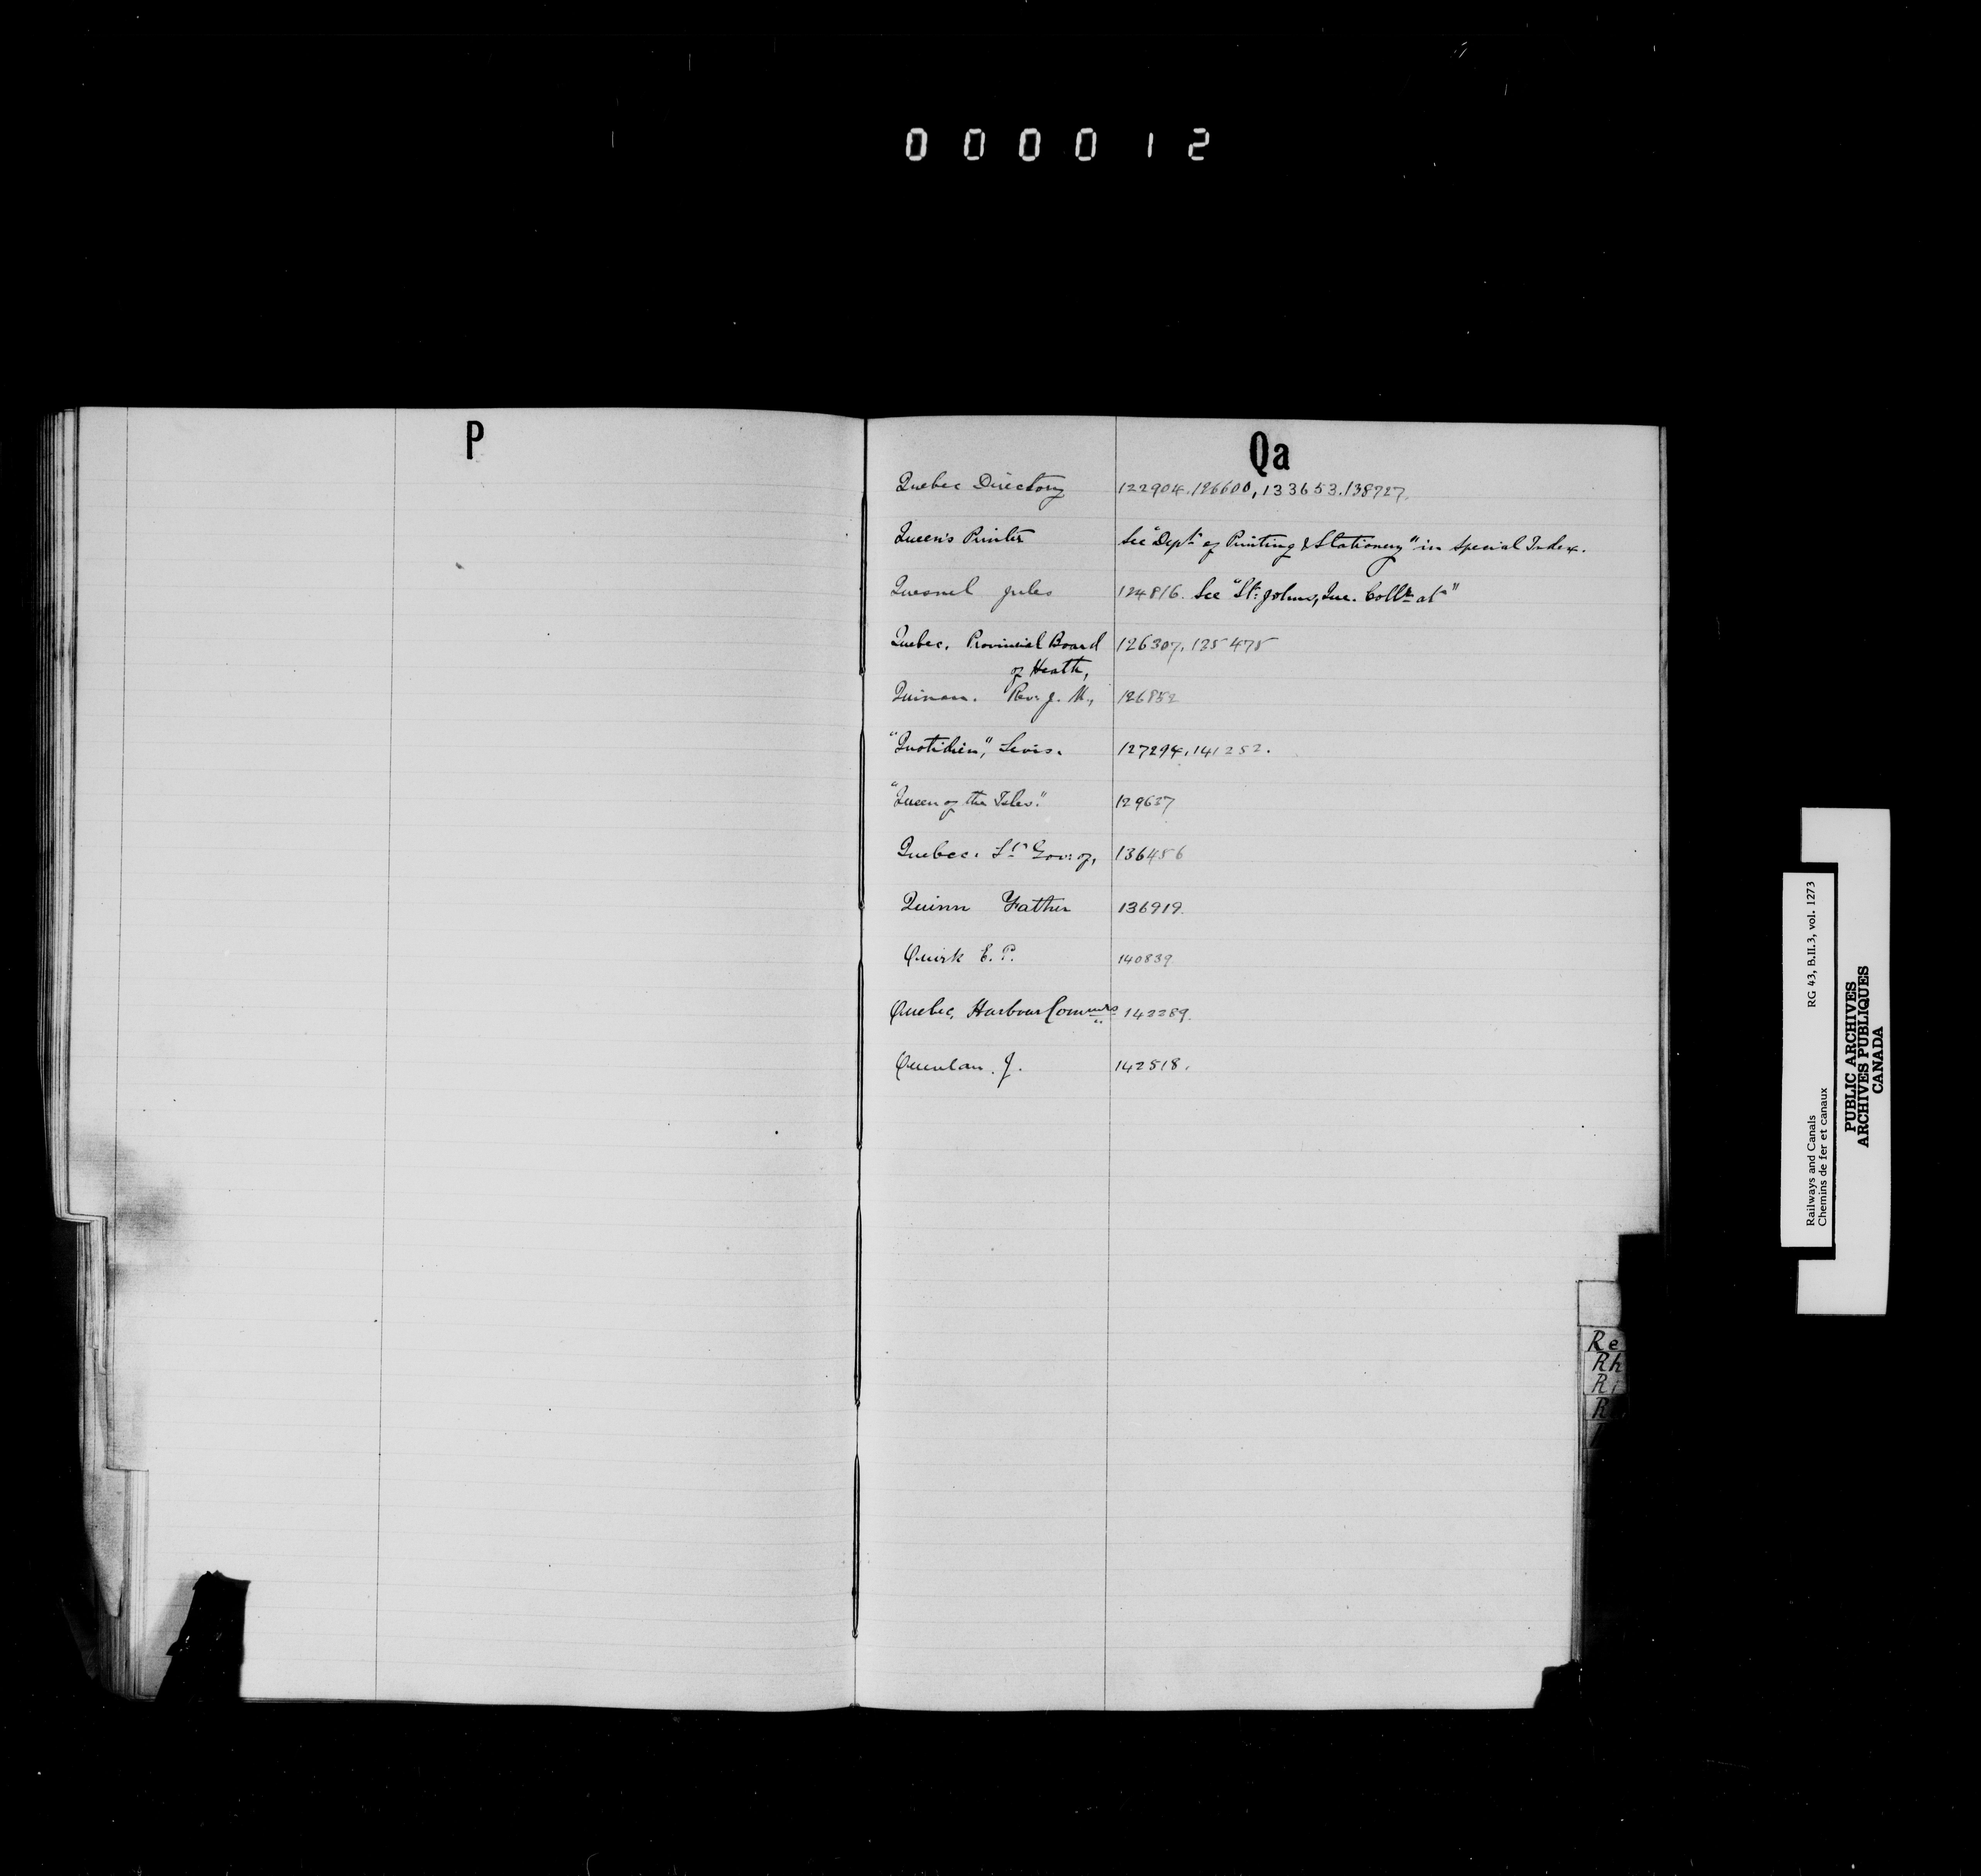 000012
P
Qa
Quebec Directory 122904. 126600, 133653. 138727.
Queen's Printer See "Dept. of Printing & Stationery" in Special Index.
Quesnel Jules 124816. See "St. Johns, Que. Collr. at"
Quebec. Provincial Board 126307. 125475
of Heath,
Quinan. Rev. J. M., 126852
"Quotidien", Levis. 127294, 141252.
"Queen of the Isles." 129637
Quebec. Lt. Gov. of, 136456
Quinn Father 136919.
Quirk E. P. 140839
Quebec, Harbour Commrs 142289.
Quinlan. J. 142518.
Re
Rh
Ri
R
Railways and Canals RG 43, B.II.3, vol. 1273
Chemins de fer et canaux
PUBLIC ARCHIVES
ARCHIVES PUBLIQUES
CANADA